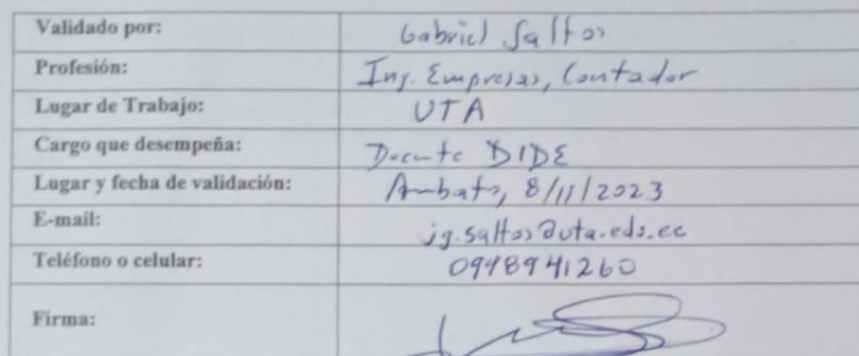 Validado por: Gabriel Saltos
Profesión: Ing. Empresas, Contador
Lugar de Trabajo: UTA
Cargo que desempeña: Docente DIDE
Lugar y fecha de validación: Ambato, 8/11/2023
E-mail: jg.saltos@uta.edu.ec
Teléfono o celular: 0998941260
Firma: